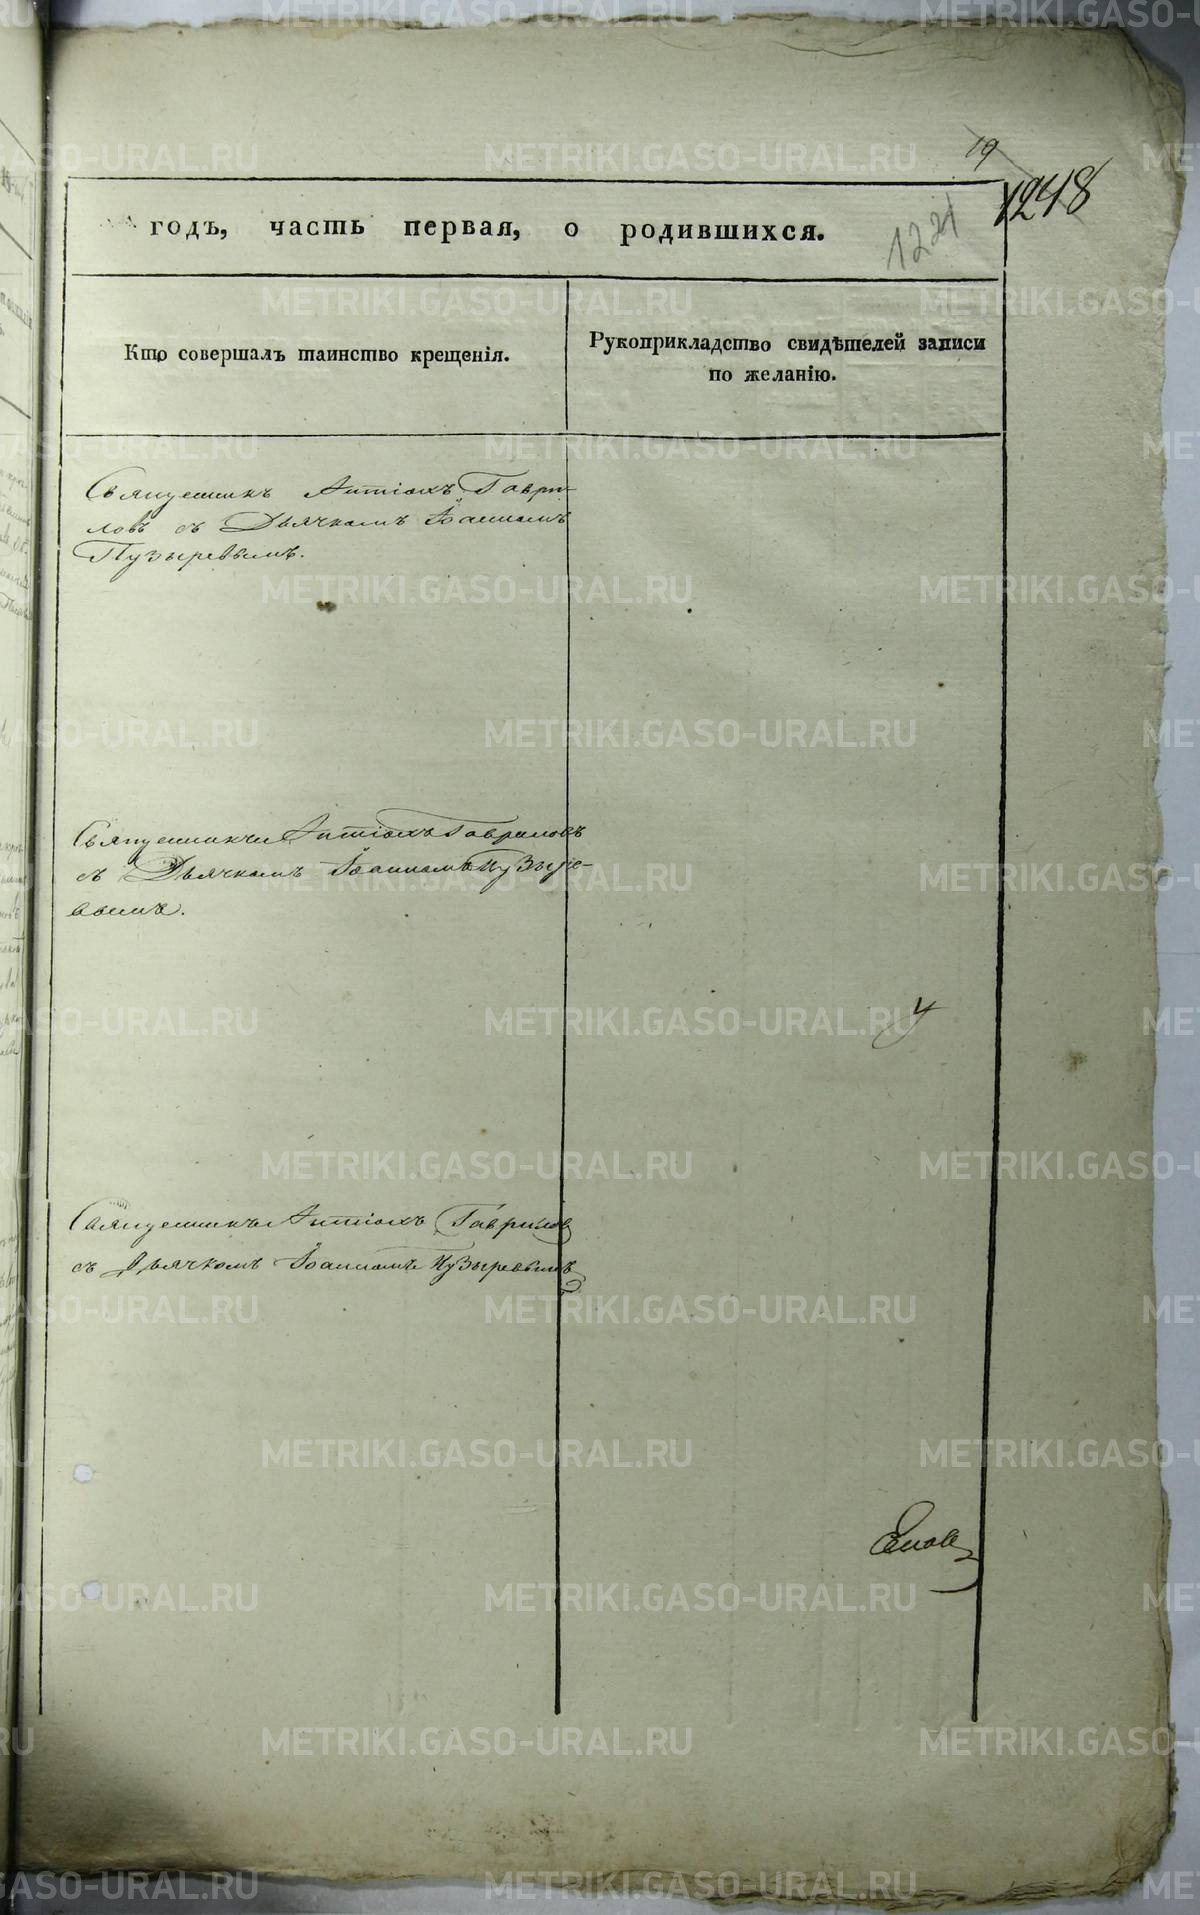 19
1248
годъ, часть первая, о родившихся.
1221
Кто совершалъ таинство крещенія.
Рукоприкладство свидѣтелей записи
по желанію.
Священникъ Антіохъ Гаври-
ловъ съ Дьячкомъ Іоанномъ
Пузыревымъ.
Священникъ Антіохъ Гавриловъ
съ Дьячкомъ Іоанномъ Пузыре-
вымъ.
у
Священникъ Антіохъ Гавриловъ
съ Дьячкомъ Іоанномъ Пузыревымъ
METRIKI.GASO-URAL.RU